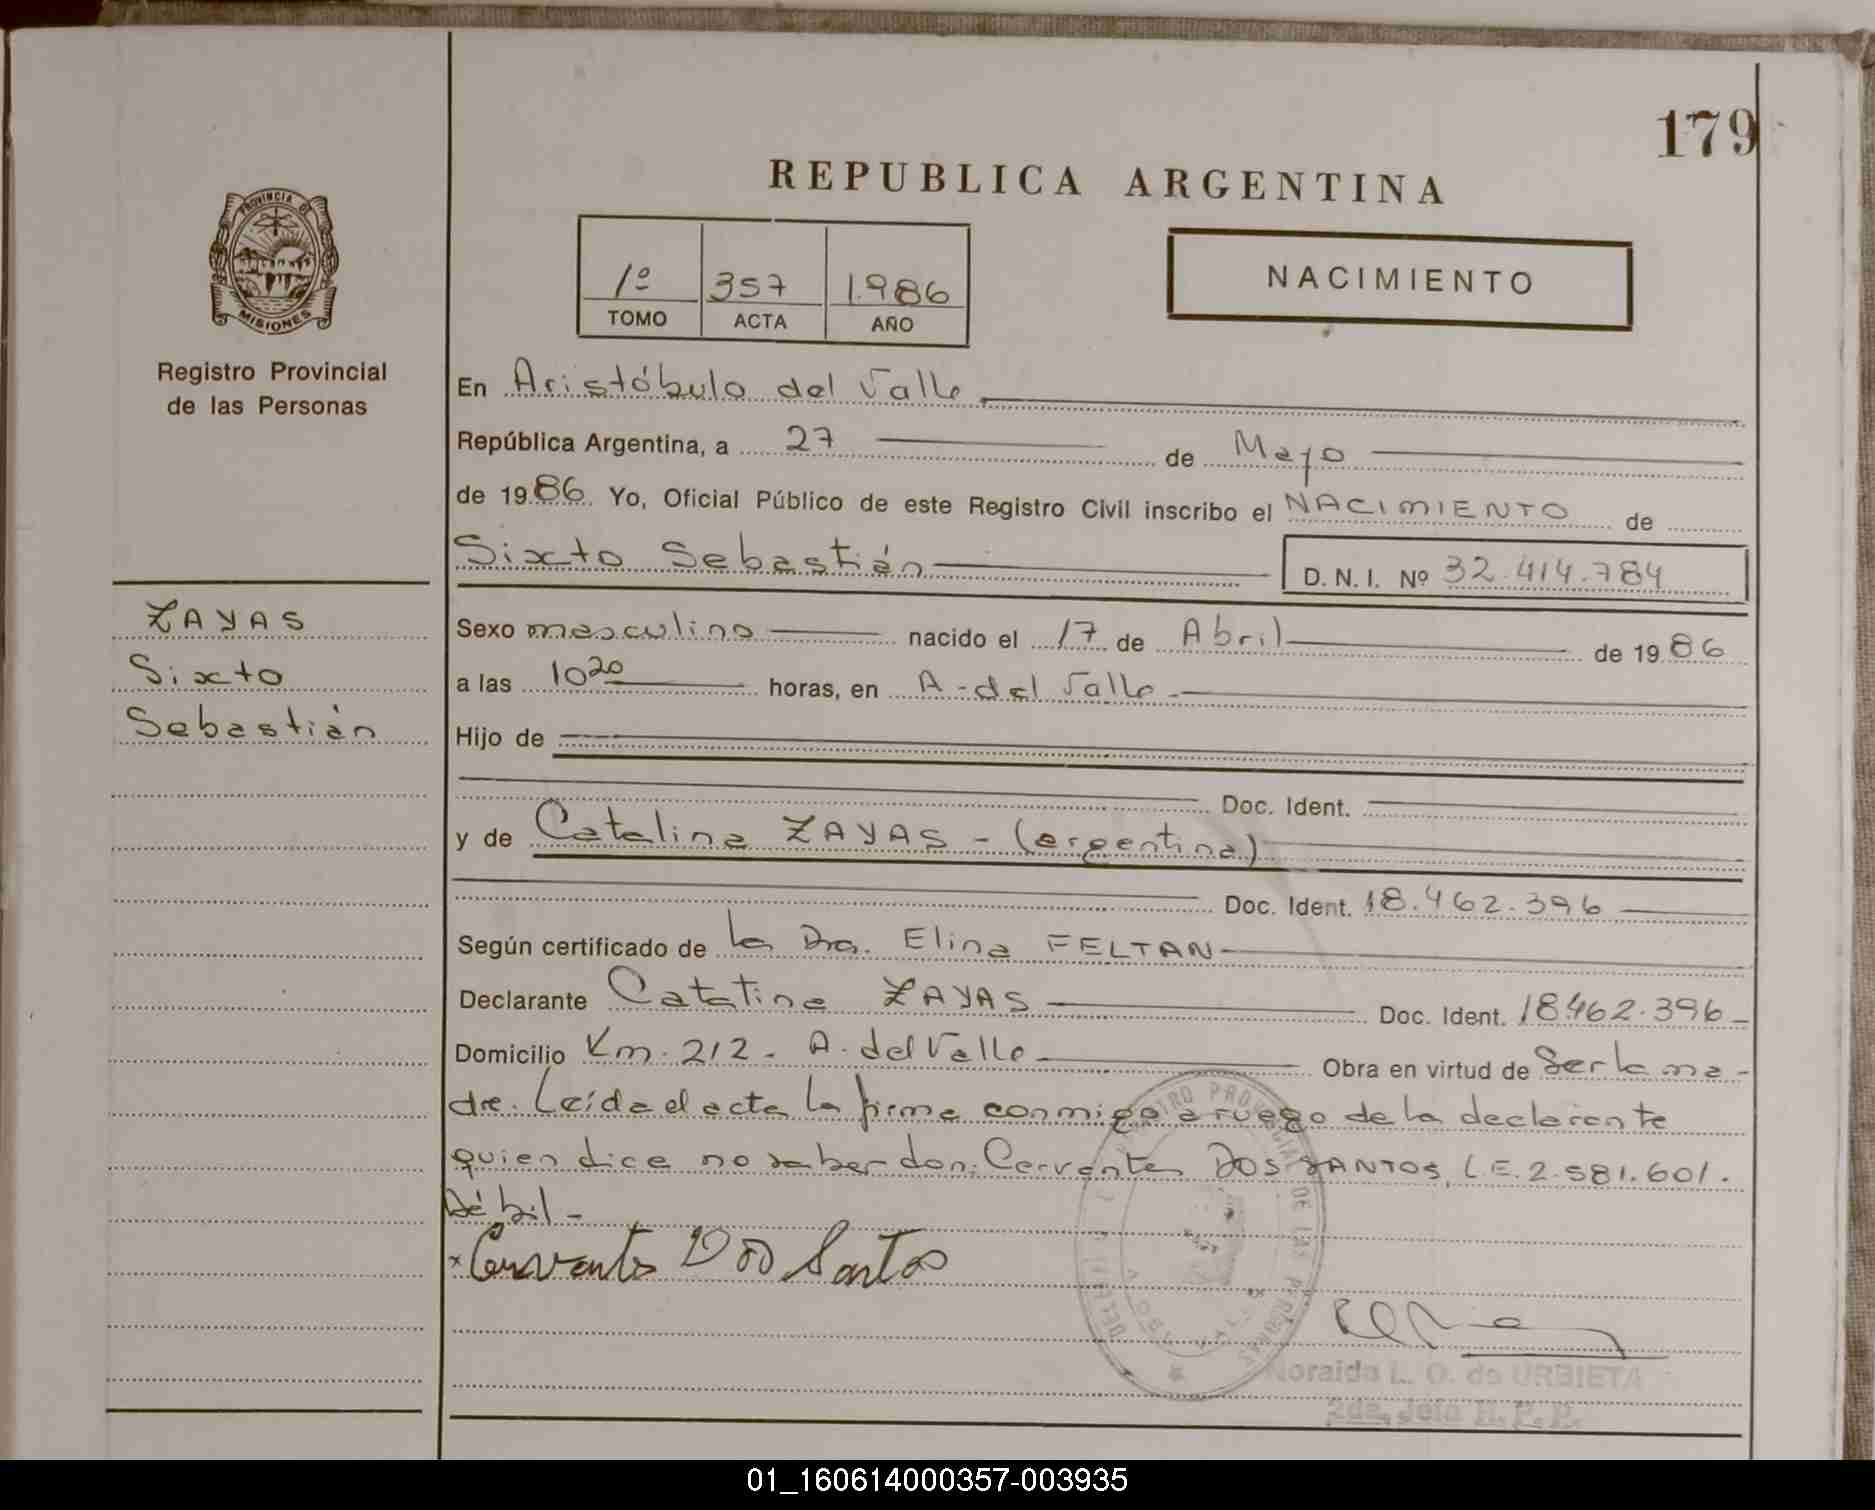 179
REPUBLICA ARGENTINA
PROVINCIA DE
MISIONES
Registro Provincial
de las Personas
1º 357 1.986
TOMO ACTA AÑO
NACIMIENTO
En Aristóbulo del Valle
República Argentina, a 27 de Mayo
de 1986 Yo, Oficial Público de este Registro Civil inscribo el NACIMIENTO de
Sixto Sebastián D.N.I. Nº 32.414.784
ZAYAS
Sixto
Sebastián
Sexo masculino nacido el 17 de Abril de 1986
a las 10 20 horas, en A. del Valle.
Hijo de
Doc. Ident.
y de Catalina ZAYAS - (argentina)
Doc. Ident. 18.462.396
Según certificado de la Dra. Elina FELTAN
Declarante Catalina ZAYAS Doc. Ident. 18462.396
Domicilio Km. 212 - A. del Valle Obra en virtud de Ser la ma-
dre. Leída el acta la firma conmigo a ruego de la declarante
quien dice no saber don: Cervantes DOS SANTOS, L.E. 2.581.601.
Débil -
x Cervantes Dos Santos
REGISTRO PROVINCIAL DE LAS PERSONAS
Noraida L. O. de URBIETA
2da. Jefa R. P. P.
01_160614000357-003935